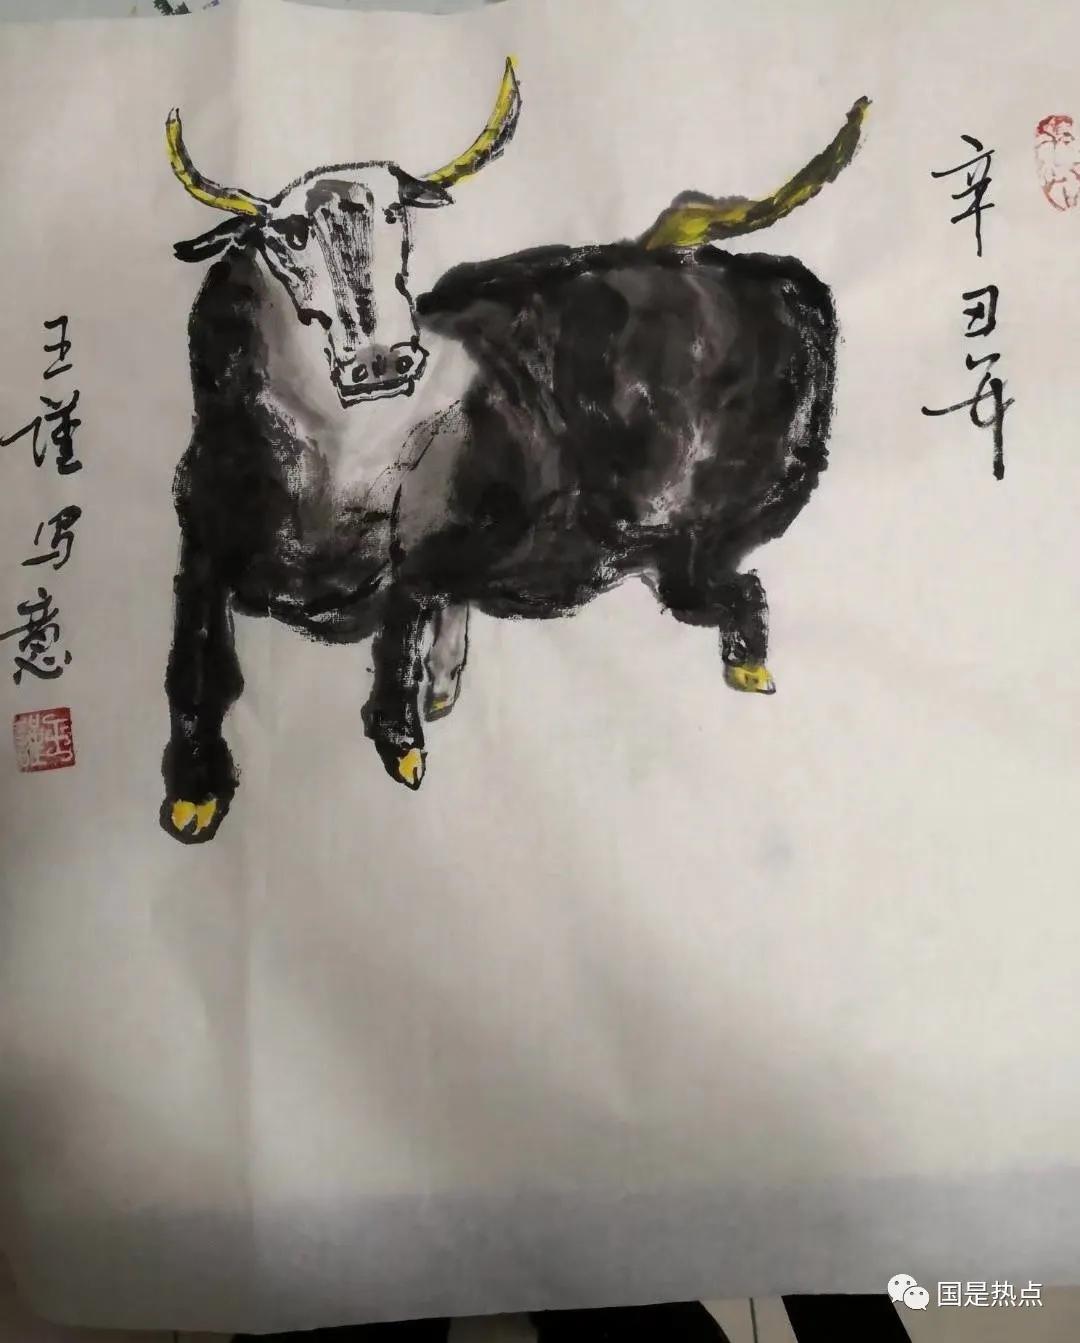 辛丑年
王谨写意
王谨
国是热点